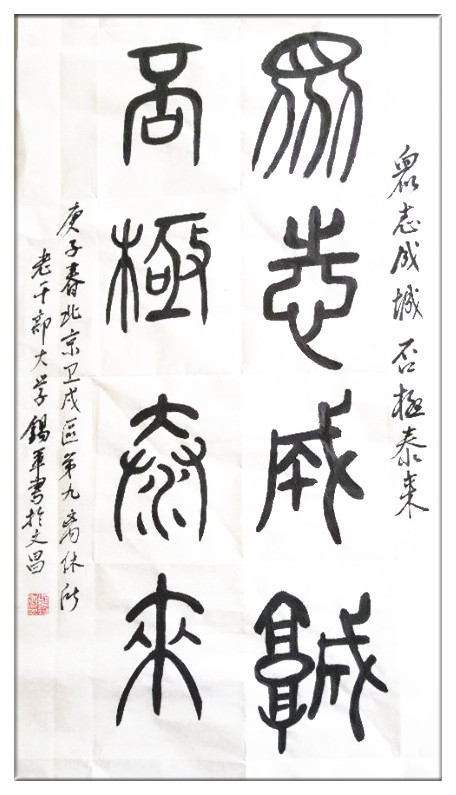 眾志成城否極泰來
眾志成城
否極泰來
庚子春北京卫戍區第九离休所
老干部大学錫華書於文昌